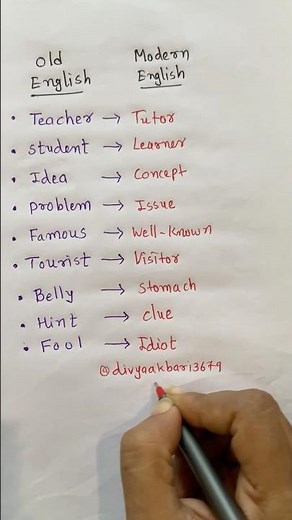 Old English Modern English
• Teacher → Tutor
• Student → Learner
• Idea → Concept
• Problem → Issue
• Famous → Well-Known
• Tourist → Visitor
• Belly → Stomach
• Hint → Clue
• Fool → Idiot
@divyaakbari3679